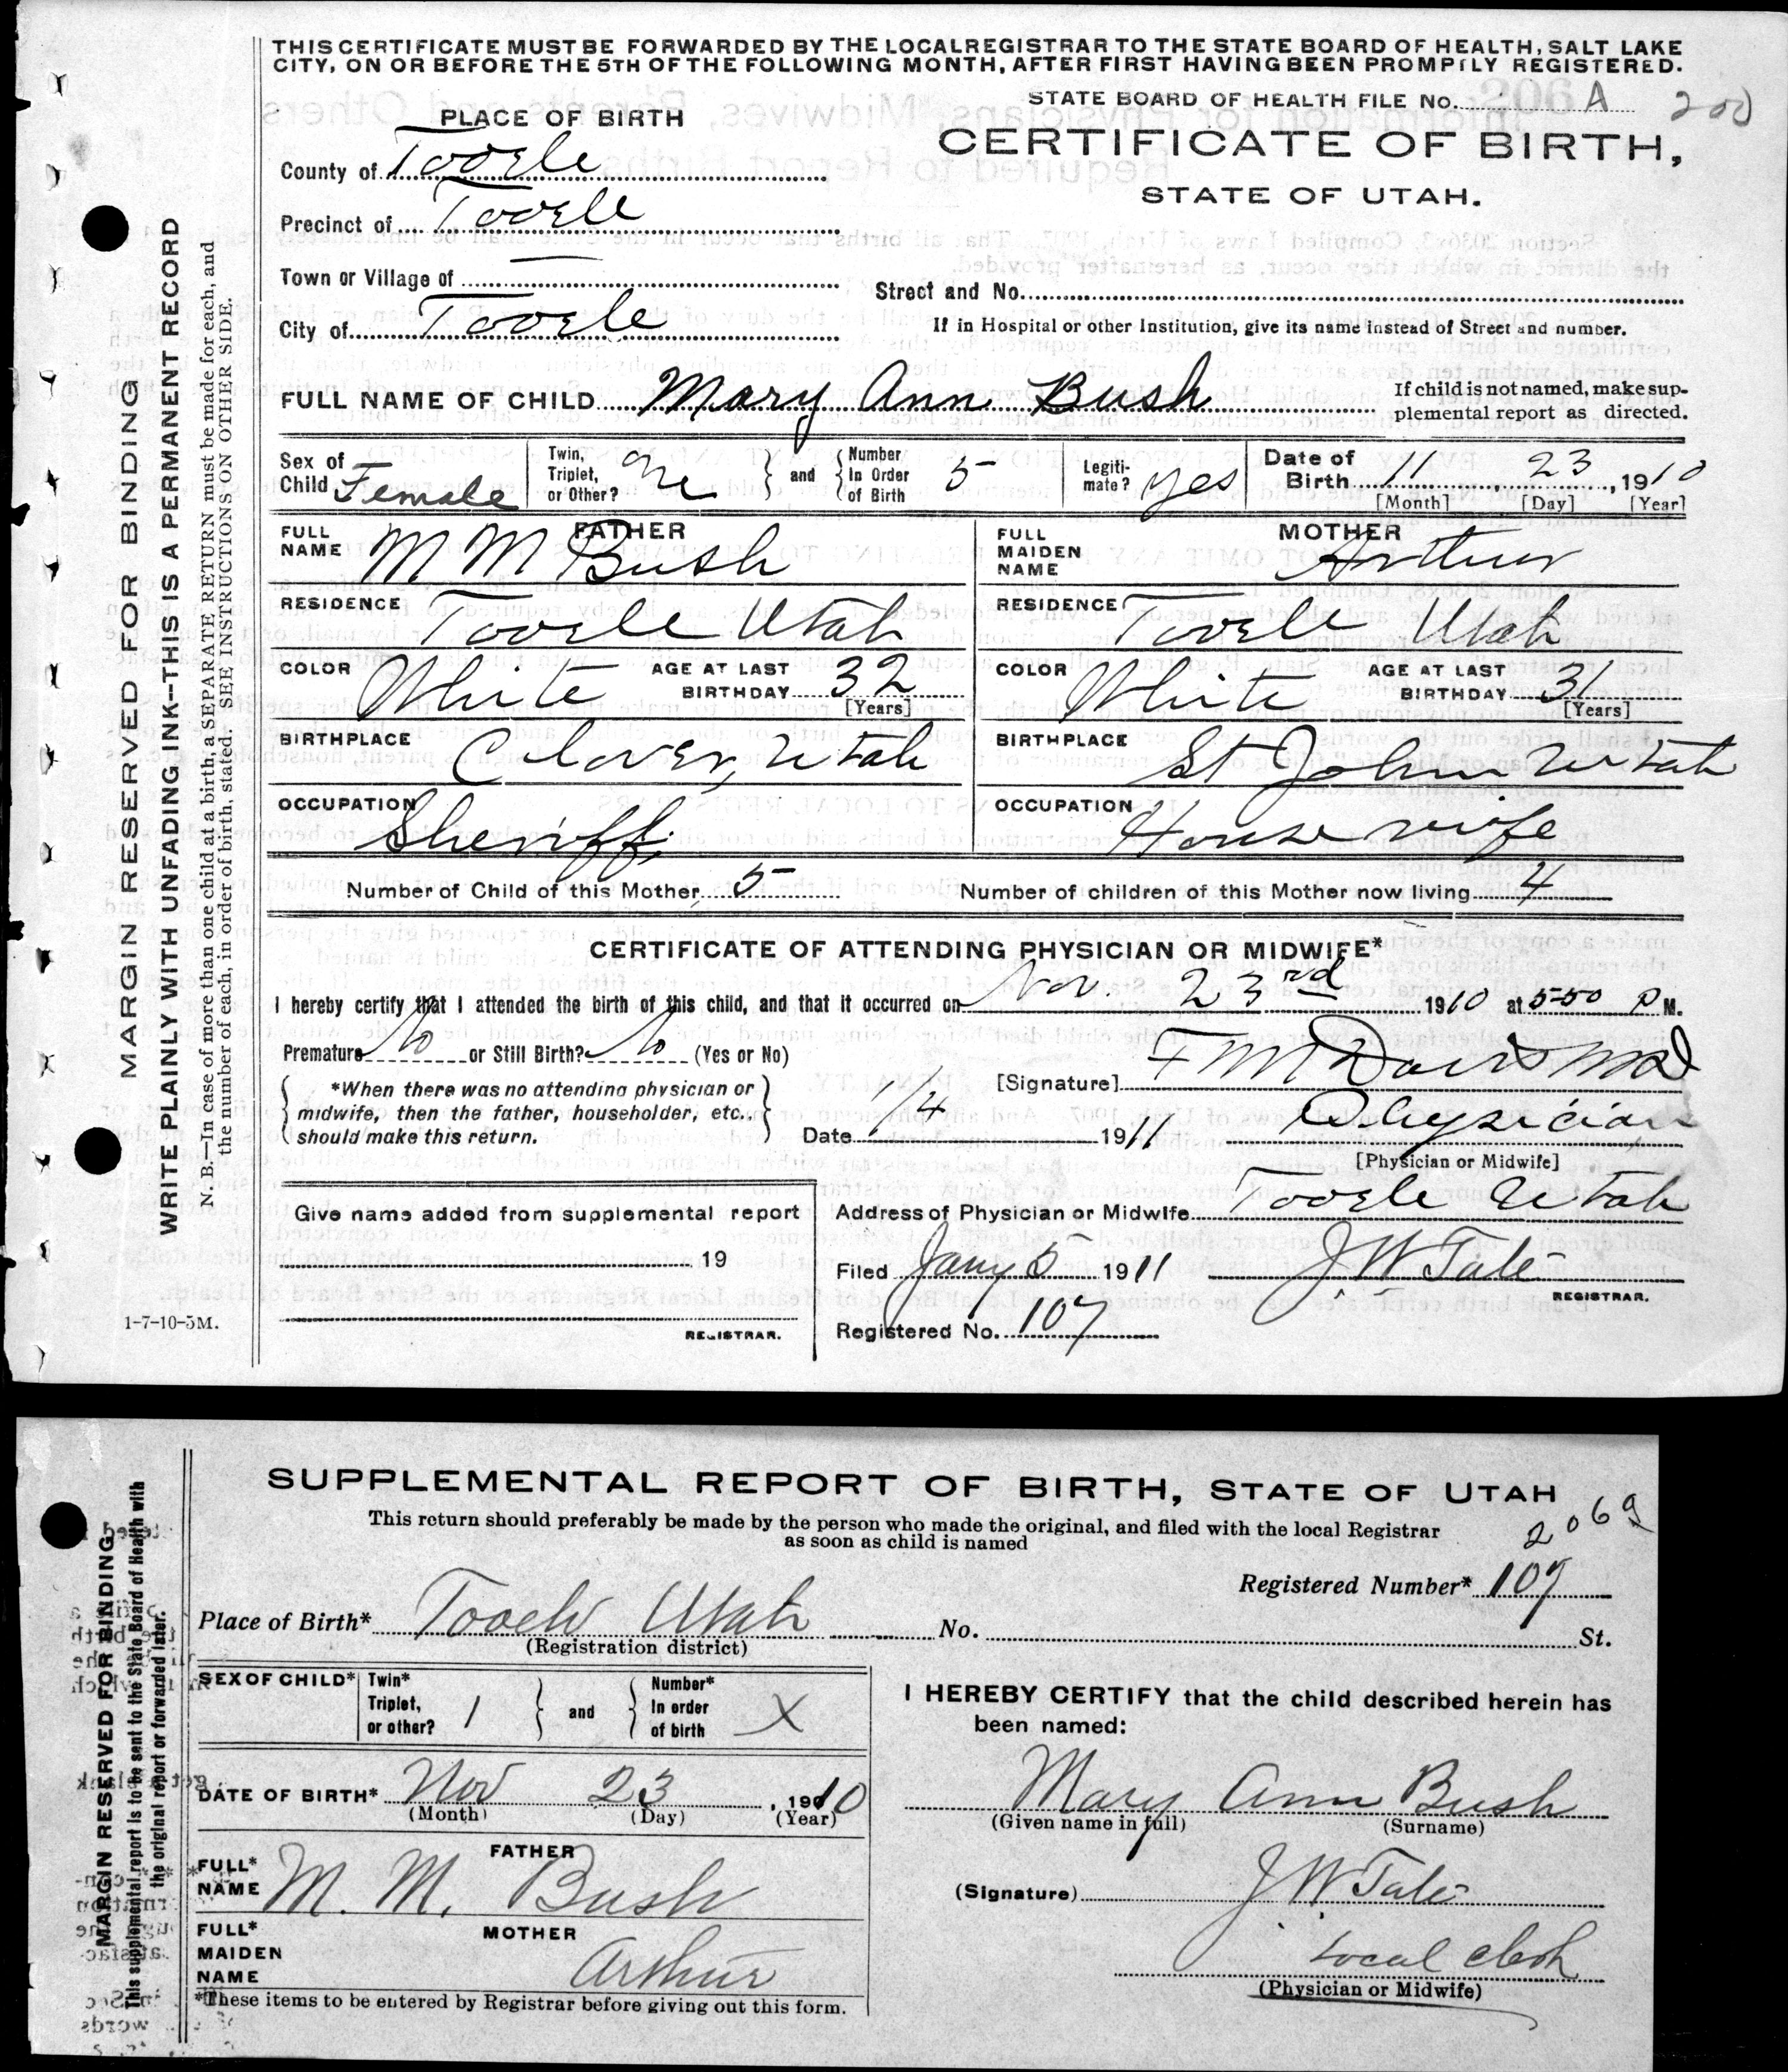 THIS CERTIFICATE MUST BE FORWARDED BY THE LOCAL REGISTRAR TO THE STATE BOARD OF HEALTH, SALT LAKE
CITY, ON OR BEFORE THE 5TH OF THE FOLLOWING MONTH, AFTER FIRST HAVING BEEN PROMPTLY REGISTERED.
STATE BOARD OF HEALTH FILE No. A 200
PLACE OF BIRTH
CERTIFICATE OF BIRTH,
STATE OF UTAH.
County of Tooele
Precinct of Tooele
Town or Village of —
Street and No.
City of Tooele
If in Hospital or other Institution, give its name instead of Street and number.
FULL NAME OF CHILD Mary Ann Bush
If child is not named, make sup-
plemental report as directed.
Sex of Child Female
Twin, Triplet, or Other?
and
Number In Order of Birth 5
Legiti-mate? yes
Date of Birth 11, 23, 1910
[Month] [Day] [Year]
FATHER
FULL NAME M M Bush
RESIDENCE Tooele Utah
COLOR White
AGE AT LAST BIRTHDAY 32
[Years]
BIRTHPLACE Clover, Utah
OCCUPATION Sheriff
MOTHER
FULL MAIDEN NAME Arthur
RESIDENCE Tooele Utah
COLOR White
AGE AT LAST BIRTHDAY 31
[Years]
BIRTHPLACE St John Utah
OCCUPATION House wife
Number of Child of this Mother 5
Number of children of this Mother now living 4
CERTIFICATE OF ATTENDING PHYSICIAN OR MIDWIFE*
I hereby certify that I attended the birth of this child, and that it occurred on Nov. 23rd 1910 at 550 P M.
Premature No or Still Birth? No (Yes or No)
*When there was no attending physician or
midwife, then the father, householder, etc.,
should make this return.
[Signature] F M Davis MD
Date 1/4 1911
Physician
[Physician or Midwife]
Give name added from supplemental report
19
REGISTRAR.
Address of Physician or Midwife Tooele Utah
Filed Jany 5 1911
J. W Tate
REGISTRAR.
Registered No. 107
1-7-10-5M.
MARGIN RESERVED FOR BINDING
WRITE PLAINLY WITH UNFADING INK--THIS IS A PERMANENT RECORD
N. B.—In case of more than one child at a birth, a SEPARATE RETURN must be made for each, and
the number of each, in order of birth, stated. SEE INSTRUCTIONS ON OTHER SIDE.
SUPPLEMENTAL REPORT OF BIRTH, STATE OF UTAH
This return should preferably be made by the person who made the original, and filed with the local Registrar
as soon as child is named
2069
Registered Number* 107
Place of Birth* Tooele Utah
No. St.
(Registration district)
SEX OF CHILD*
Twin* Triplet, or other? 1
and
Number* In order of birth X
DATE OF BIRTH* Nov 23, 1910
(Month) (Day) (Year)
FATHER
FULL* NAME M. M. Bush
MOTHER
FULL* MAIDEN NAME Arthur
*These items to be entered by Registrar before giving out this form.
I HEREBY CERTIFY that the child described herein has
been named:
Mary Ann Bush
(Given name in full) (Surname)
(Signature) J. W. Tate
Local clerk
(Physician or Midwife)
MARGIN RESERVED FOR BINDING
This supplemental report is to be sent to the State Board of Health with
the original report or forwarded later.